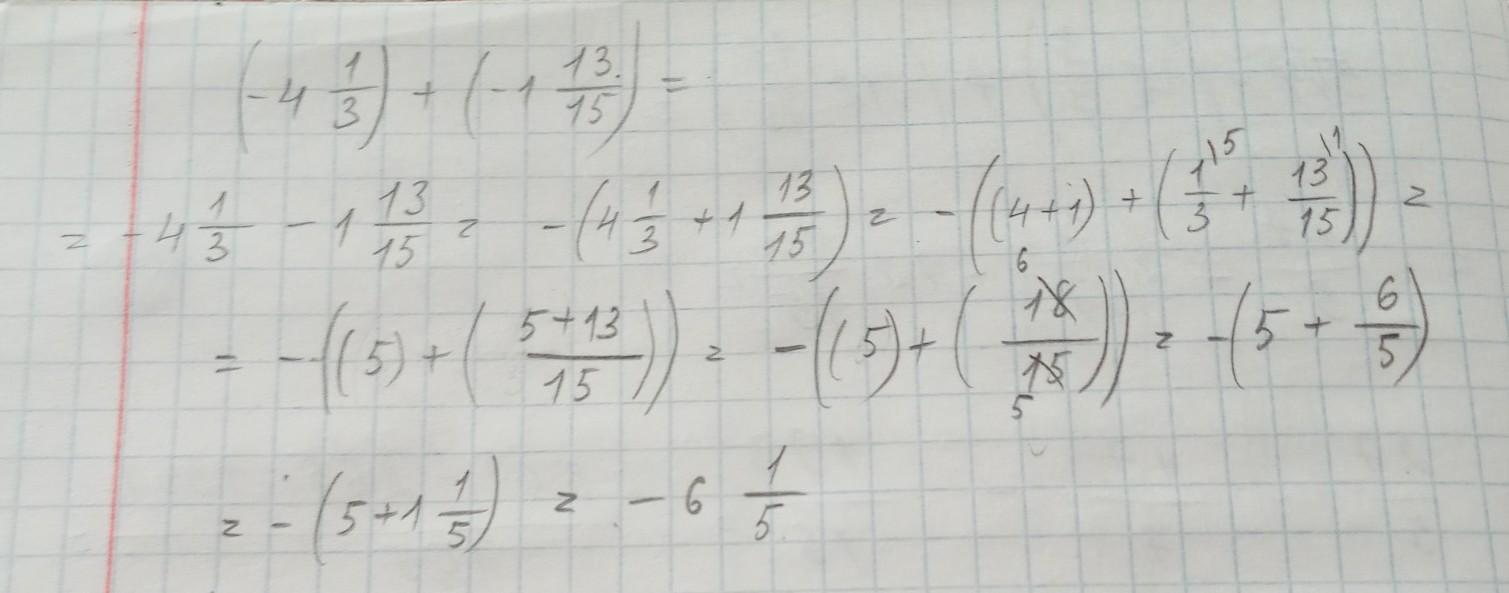 (-4 1/3) + (-1 13/15) =
= -4 1/3 - 1 13/15 = -(4 1/3 + 1 13/15) = -((4+1) + (1\5/3 + 13\1/15)) =
= -((5) + (5+13/15)) = -((5) + (18 6/15 5)) = -(5 + 6/5)
= -(5+1 1/5) = -6 1/5